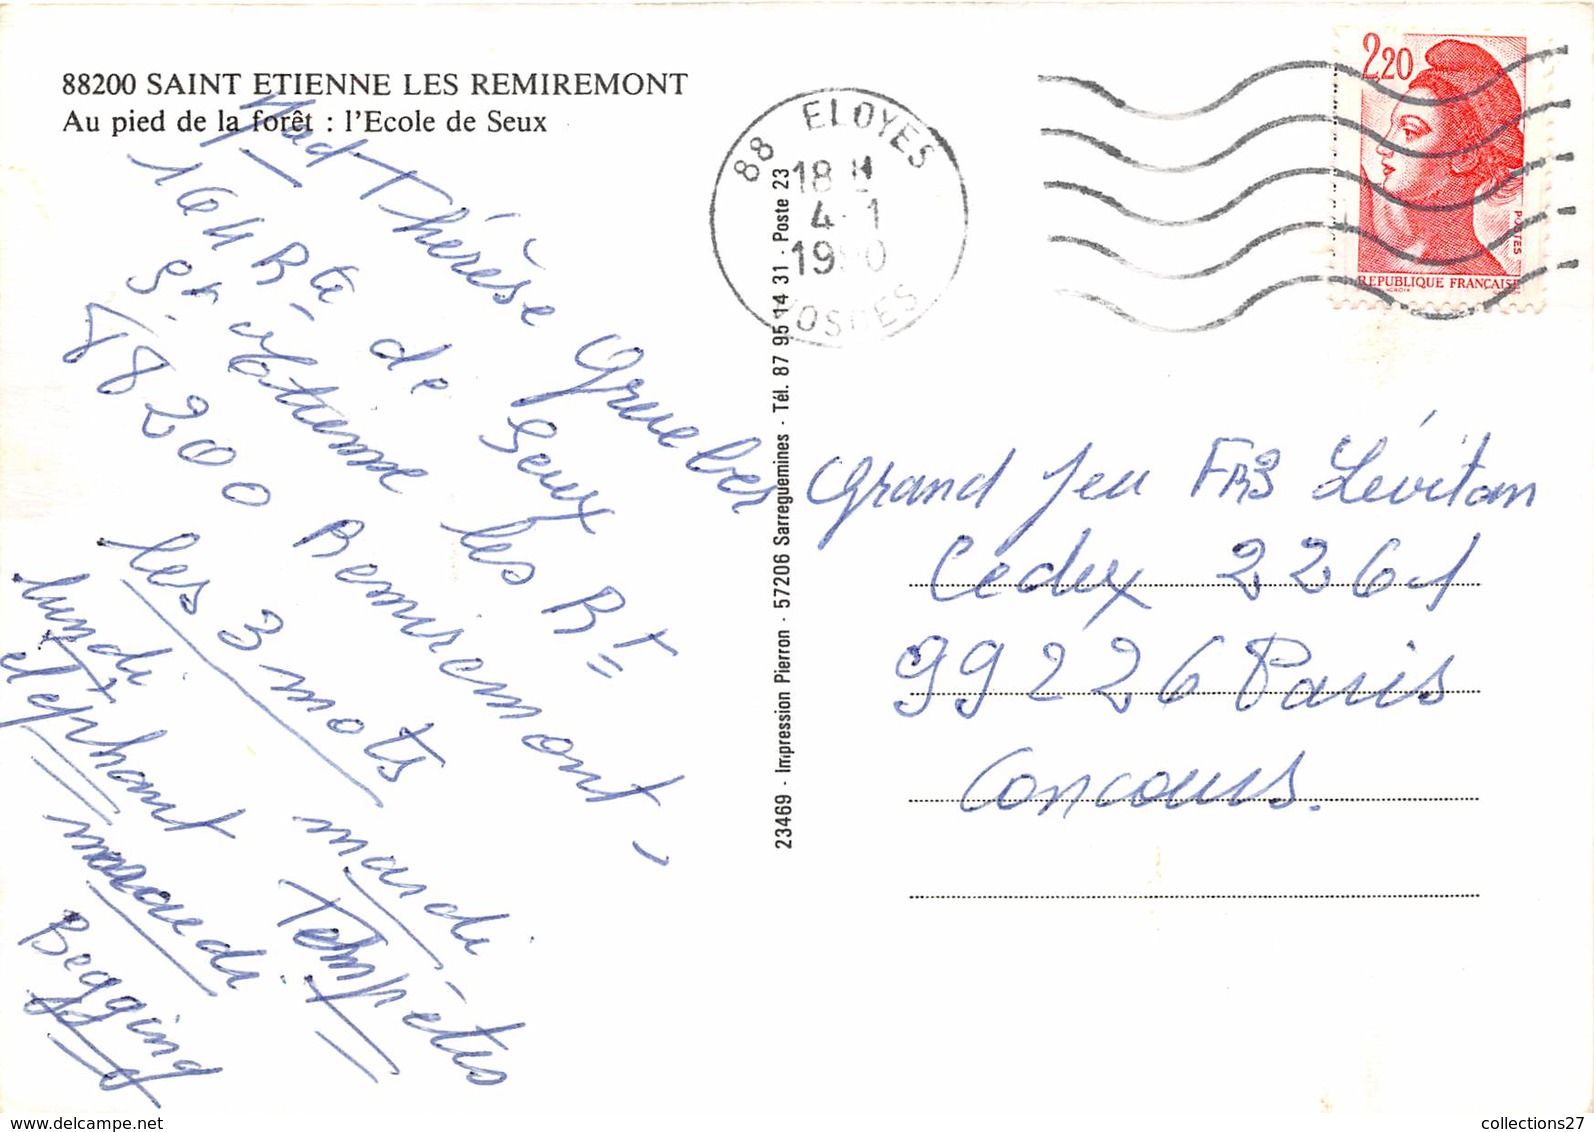 88200 SAINT ETIENNE LES REMIREMONT
Au pied de la forêt : l'Ecole de Seux
Mad Thérèse Grueber
164 Rte de Seux
St Etienne les Rt
88200 Remiremont -
les 3 mots
lundi
éléphant
mardi
Tempêtes
mercredi
Begging
23469 - Impression Pierron - 57206 Sarreguemines - Tél. 87 95 14 31 - Poste 23
88 ELOYES
18 H
4-1
1990
VOSGES
2,20
POSTES
REPUBLIQUE FRANCAISE
Grand Jeu FR3 Lévitan
Cedex 2261
99226 Paris
Concours.
collections27